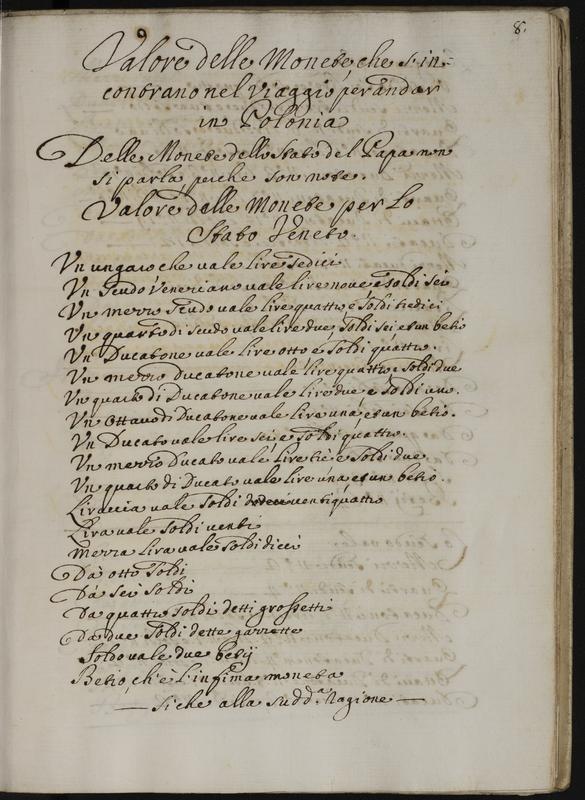 8.
Valore delle Monete, che s'in=
contrano nel Viaggio per andar
in Polonia
Delle Monete dello Stato del Papa non
si parla perche son note.
Valore delle Monete per lo
Stato Veneto.
Un ungaro che vale lire sedici
Un scudo Veneziano vale lire nove e soldi sei
Un mezzo scudo vale lire quattro e soldi tredici
Un quarto di scudo vale lire due, soldi sei et un betio
Un Ducatone vale lire otto e soldi quattro.
Un mezzo Ducatone vale lire quattro e soldi due
Un quarto di Ducatone vale lire due e soldi uno.
Un Ottavo di Ducatone vale lire una, et un betio.
Un Ducato vale lire sei, e soldi quattro.
Un mezzo Ducato vale lire tré e soldi due
Un quarto di Ducato vale lire una et un betio.
Liraccia vale soldi ventiquattro
Lira vale soldi venti
Mezza lira vale soldi dieci
Da otto soldi
Da sei soldi
Da quattro soldi detti grossetti
Da due soldi dette gazzette
Soldo vale due betij
Betio, ch'è l'infima moneta
— Siche alla sudd.a Ragione —